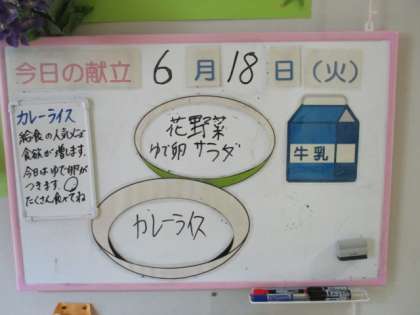 今日の献立 6月18日(火)
カレーライス
給食の人気メニュー
食欲が増します。
今日はゆで卵が
つきます。
たくさん食べてね
花野菜
ゆで卵 サラダ
牛乳
カレーライス